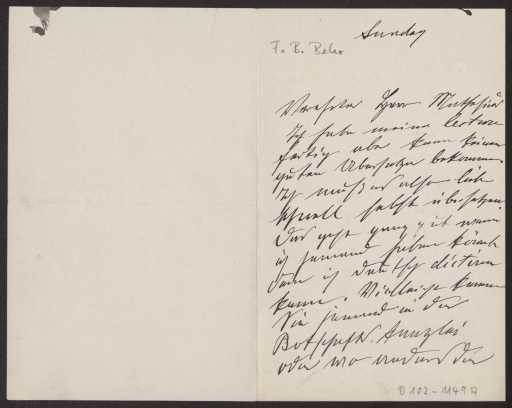 Sunday
F. B. Baker
Verehrter Herr Muthesius
Ich habe meine lecture
fertig aber kann keinen
guten Übersetzer bekommen.
Ich muß es also
schnell selbst übersetzen
Das geht ganz gut wenn
ich jemand haben könnte
dem ich deutsch dictiren
kann. Vielleicht kennen
Sie jemand in der
Botschafts Kanzlei
oder wo anders der
D 102-1149a